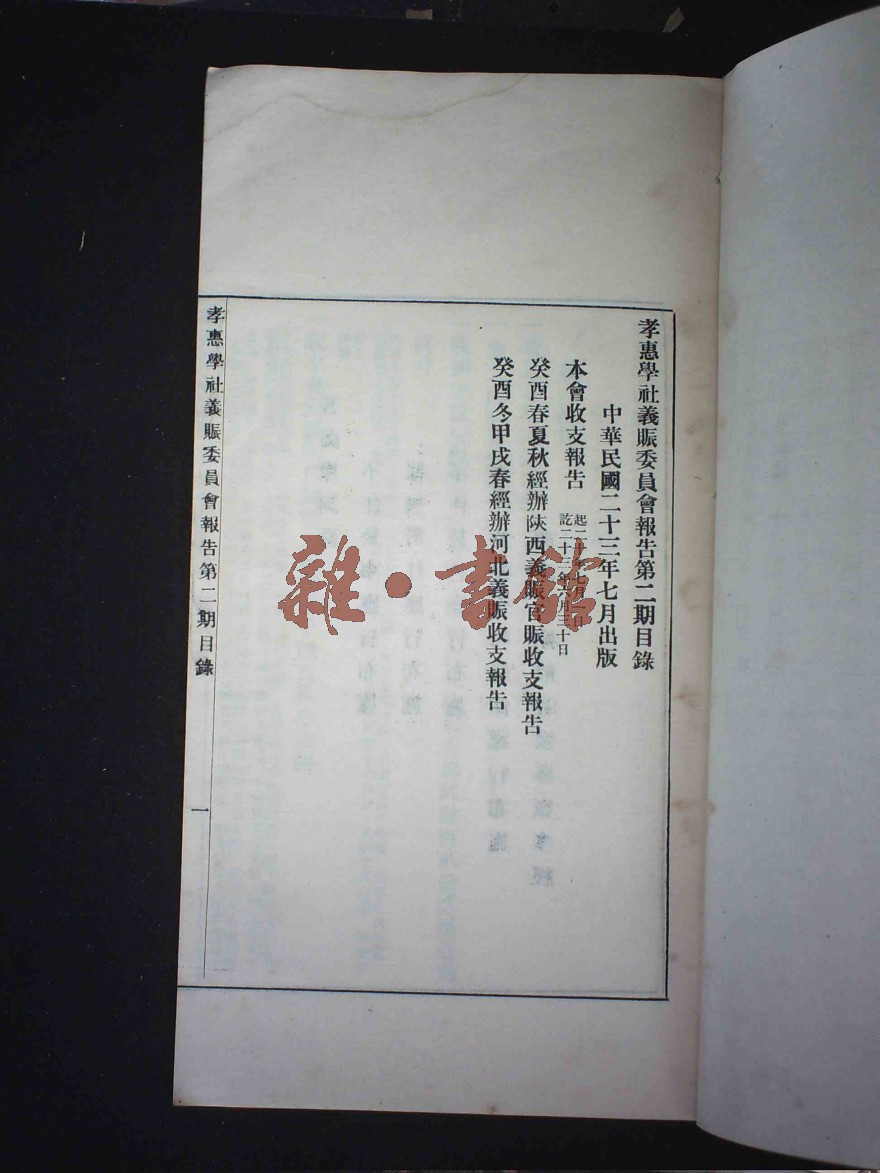 孝惠學社義賑委員會報告第二期目錄
中華民國二十三年七月出版
本會收支報告
起二十年七月一日
訖二十三年六月三十日
癸酉春夏秋經辦陝西義賑官賑收支報告
癸酉冬甲戌春經辦河北義賑收支報告
孝惠學社義賑委員會報告第二期目錄
一
雜·書館